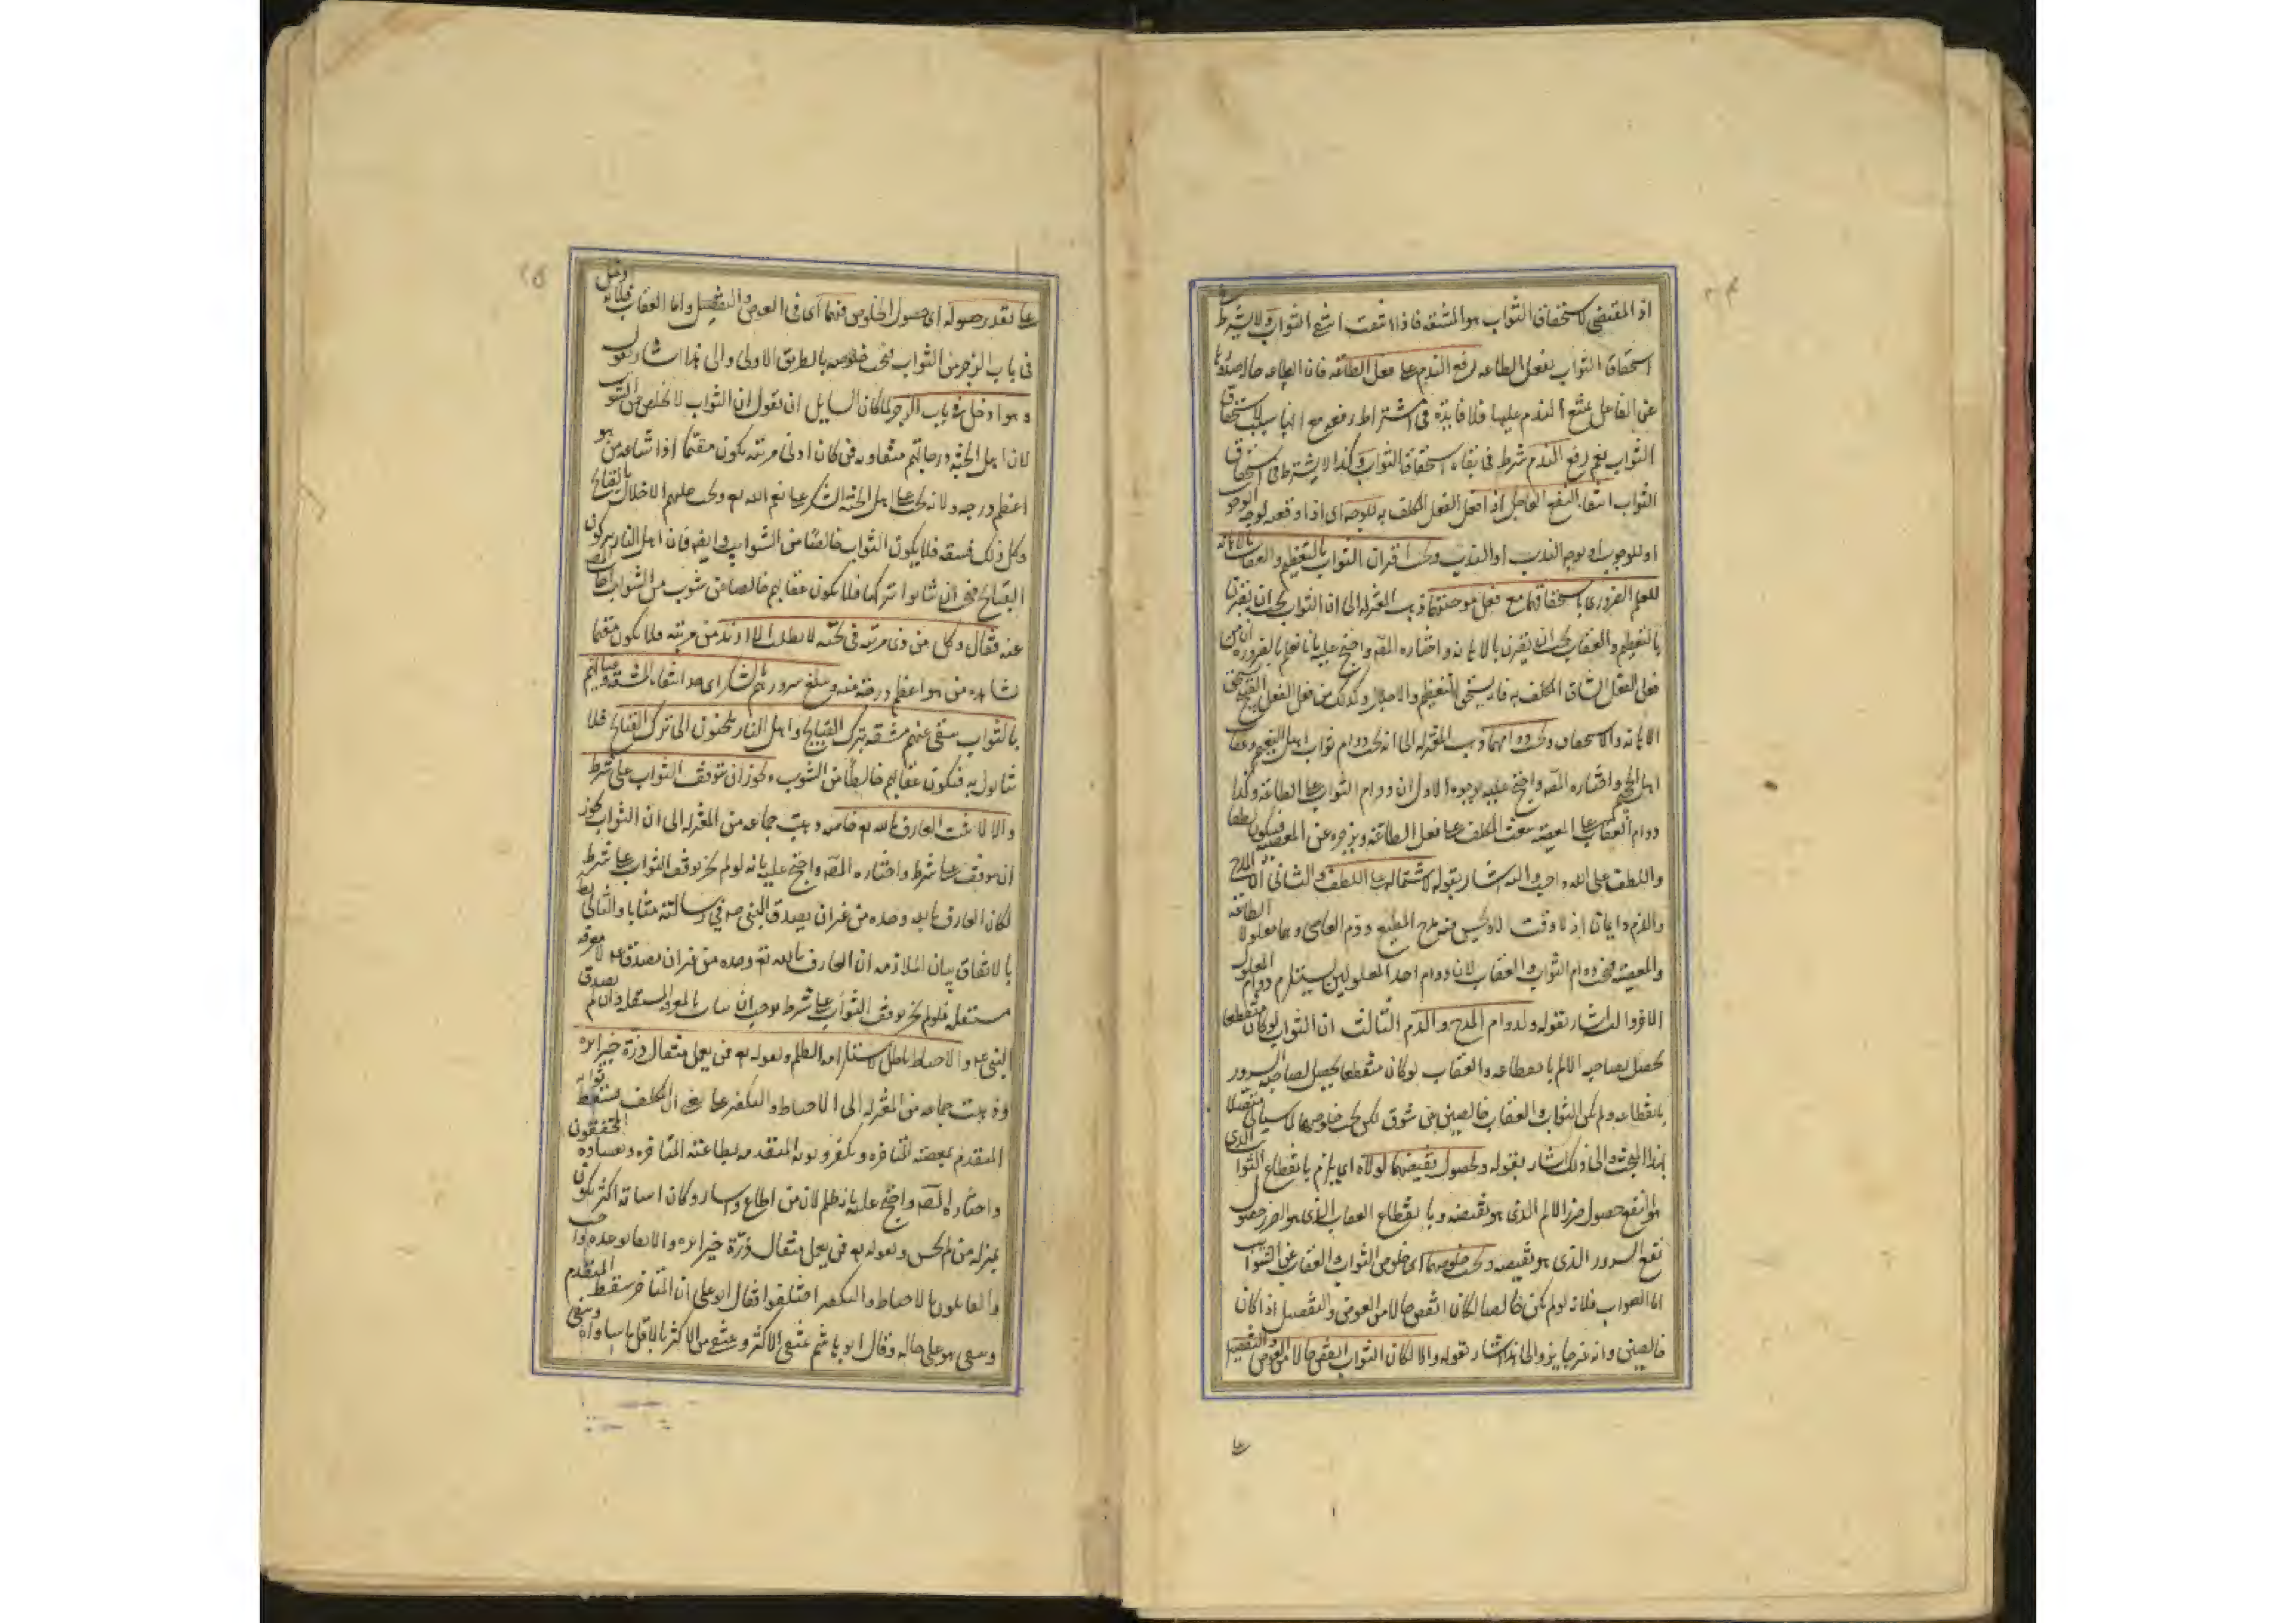 اذ المقتضی لاستحقاق الثواب هو المشقه فاذا انتفت انتفع الثواب ولا یشترط
استحقاق الثواب بفعل الطاعه رفع الندم علی فعل الطاعه فان الطاعه حال صدورها
عن الفاعل یمتنع الندم علیها فلا فایدة فی اشتراط رفعه مع انها سبب لاستحقاق
الثواب نعم رفع الندم شرط فی بقاء استحقاق الثواب وکذا لا یشترط فی استحقاق
الثواب انتفاء النفع العاجل اذا فعل الفعل المکلف به للوجه ای اذا اوقعه لوجه الوجوب
او للوجوب او لوجه الندب او الندب ویجب اقتران الثواب بالتعظیم والعقاب بالاهانه
للعلم الضروری باستحقاقهما مع فعل موجبهما ذهب المعتزله الی ان الثواب یجب ان یقترن
بالتعظیم والعقاب یجب ان یقترن بالاهانه واختاره المصه واحتج علیه بانا نعلم بالضروره ان من
فعل الفعل الشاق المکلف به فانه یستحق التعظیم والاجلال وکذلک من فعل الفعل القبیح یستحق
الاهانه والاستخفاف ویجب دوامهما ذهب المعتزله الی انه یجب دوام ثواب اهل النعیم وعقاب
اهل الجحیم واختاره المصه واحتج علیه بوجوه الاول ان دوام الثواب علی الطاعه وکذا
دوام العقاب علی المعصیه یبعث المکلف علی فعل الطاعه ویزجره عن المعصیه فیکون لطفا
واللطف علی الله واجب والیه اشار بقوله لاشتماله علی اللطف والثانی ان المدح
والذم دایمان اذ لا وقت الا ویحسن فیه مدح المطیع وذم العاصی وهما معلولا الطاعه
والمعصیه فیجب دوام الثواب والعقاب لان دوام احد المعلولین یستلزم دوام المعلول
الاخر والیه اشار بقوله ولدوام المدح والذم الثالث ان الثواب لو کان منقطعا
یحصل لصاحبه الالم بانقطاعه والعقاب لو کان منقطعا یحصل لصاحبه السرور
بانقطاعه ولم یکن الثواب والعقاب خالصین عن شوب لکن یجب خلوصهما لما سیاتی متصلا
بهذا البحث والی ذلک اشار بقوله ولحصول نقیضهما لولاه ای یلزم بانقطاع الثواب الذی
هو النفع حصول ضرر الالم الذی هو نقیضه وبانقطاع العقاب الذی هو الضرر حصول
نفع السرور الذی هو نقیضه ویجب خلوصهما ای خلوص الثواب والعقاب عن الشوایب
اما الثواب فلانه لو لم یکن خالصا لکان انقص حالا من العوض والتفضل اذا کان
خالصین وانه غیر جایز والی هذا اشار بقوله والا لکان الثواب انقص حالا من العوض والتفضل
علی
علی تقدیر حصوله ای حصول الخلوص فیهما ای فی العوض والتفضل واما العقاب فلانه ادخل
فی باب الزجر من الثواب فیجب خلوصه بالطریق الاولی والی هذا اشار بقوله
وهو ادخل فی باب الزجر لما کان السایل ان یقول ان الثواب لا یخلص من الشوب
لان اهل الجنه درجاتهم متفاوته فمن کان ادنی مرتبه یکون مغتما اذا شاهد من هو
اعظم درجه ولانه یجب علی اهل الجنه الشکر علی نعم الله تع ویجب علیهم الاخلال بالقبایح
وکل ذلک مشقه فلا یکون الثواب خالصا من الشوایب وایضه فان اهل النار یترکون
القبایح فیجب ان یثابوا بترکها فلا یکون عقابهم خالصا من شوب من الثواب اجاب المصه
عنه فقال وکل من ذی مرتبه فی الجنه لا یطلب الا ازید من مرتبه فلا یکون مغتما
بشاهده من هو اعظم درجه منه ومبلغ سرورهم بالشکر الی حد انتفاء المشقه وغناهم
بالثواب ینفی عنهم مشقه ترک القبایح واهل النار یلجئون الی ترک القبایح فلا
یثابون به فیکون عقابهم خالصا من الشوب ویجوز ان یتوقف الثواب علی شرط
والا لاثیب العارف بالله تع خاصه ذهب جماعه من المعتزله الی ان الثواب یجوز
ان یتوقف علی شرط واختاره المصه واحتج علیه بانه لو لم یجز توقف الثواب علی شرط
لکان العارف بالله وحده من غیر ان یصدق النبی صه فی رسالته مثابا والتالی بط
بالاتفاق بیان الملازمه ان العارف بالله تع وحده من غیر ان یصدقه لا معرفه
مستقله فلو لم یجز توقف الثواب علی شرط یوجب ان یثاب بالمعرفه المستقله وان لم یصدق
النبی عه والاحباط باطل لاستلزامه الظلم ولقوله تع فمن یعمل مثقال ذرة خیرا یره
ذهبت جماعه من المعتزله الی الاحباط والتکفیر علی معنی ان المکلف یسقط ثوابه
المتقدم بمعصیته المتاخره ویکفر ذنوبه المتقدمه بطاعته المتاخره ونفاه المحققون
واختاره المصه واحتج علیه بانه ظلم لان من اطاع واساء وکان اساءته اکثر یکون
بمنزله من لم یحسن ولقوله تع فمن یعمل مثقال ذرة خیرا یره والایفا بوعده واجب
والقایلون بالاحباط والتکفیر اختلفوا فقال ابو علی ان المتاخر یسقط المتقدم
ویبقی هو علی حاله وقال ابو هاشم ینتفی الاکثر وینتفی من الاکثر بالاقل ما ساواه ویبقی